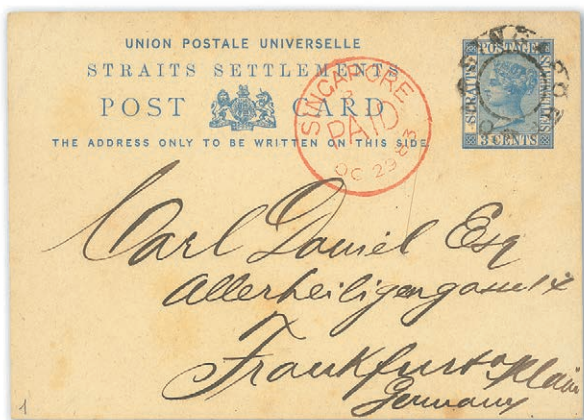 UNION POSTALE UNIVERSELLE
STRAITS SETTLEMENTS
POST CARD
THE ADDRESS ONLY TO BE WRITTEN ON THIS SIDE
SINGAPORE
PAID
OC 29 83
POSTAGE
STRAITS SETTLEMENTS
3 CENTS
Carl Daniel Esq
Allerheiligengasse 14
Frankfurt a Main
Germany
1